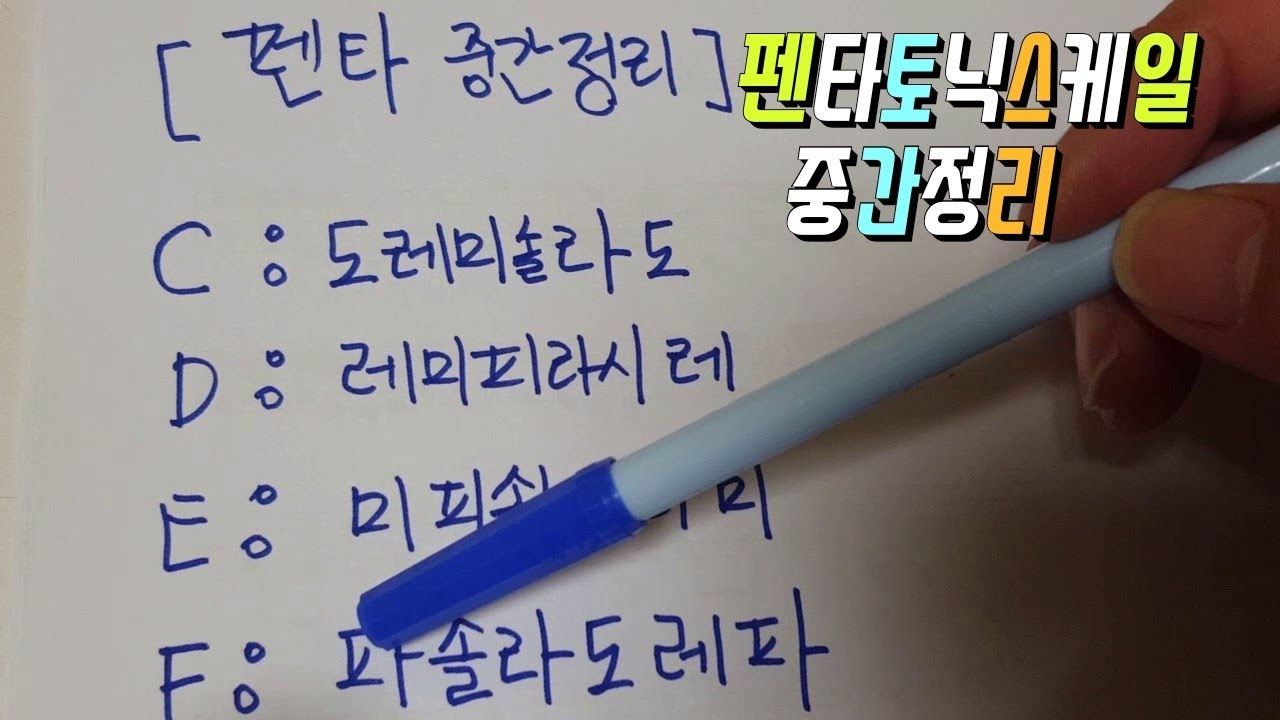 [ 펜타 중간정리 ]
펜타토닉스케일
중간정리
C : 도레미솔라도
D : 레미피라시레
E : 미피 미
F : 파솔라도레파